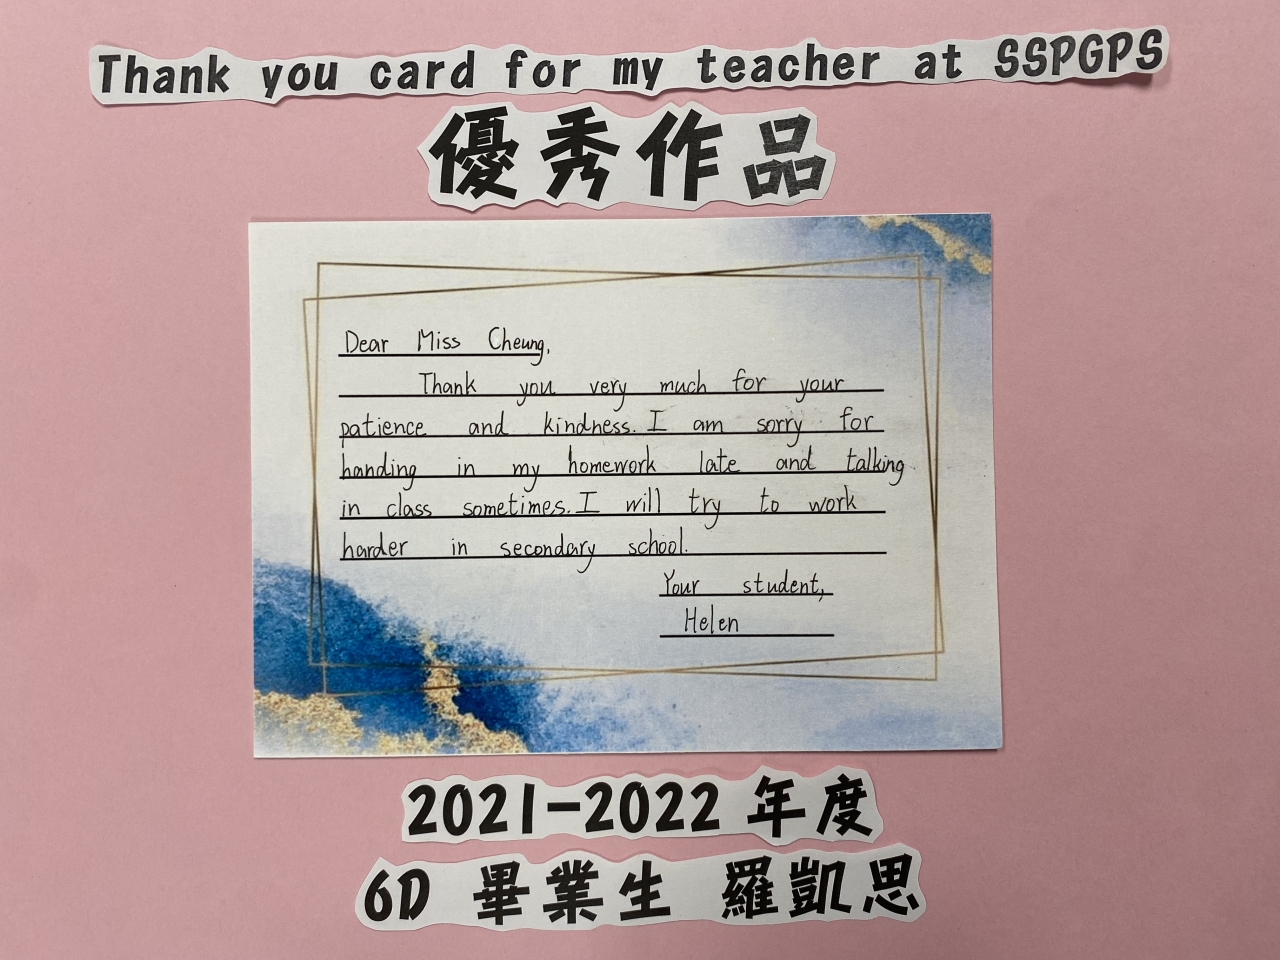 Thank you card for my teacher at SSPGPS
優秀作品
Dear Miss Cheung,
Thank you very much for your
patience and kindness. I am sorry for
handing in my homework late and talking
in class sometimes. I will try to work
harder in secondary school.
Your student,
Helen
2021-2022 年度
6D 畢業生 羅凱思